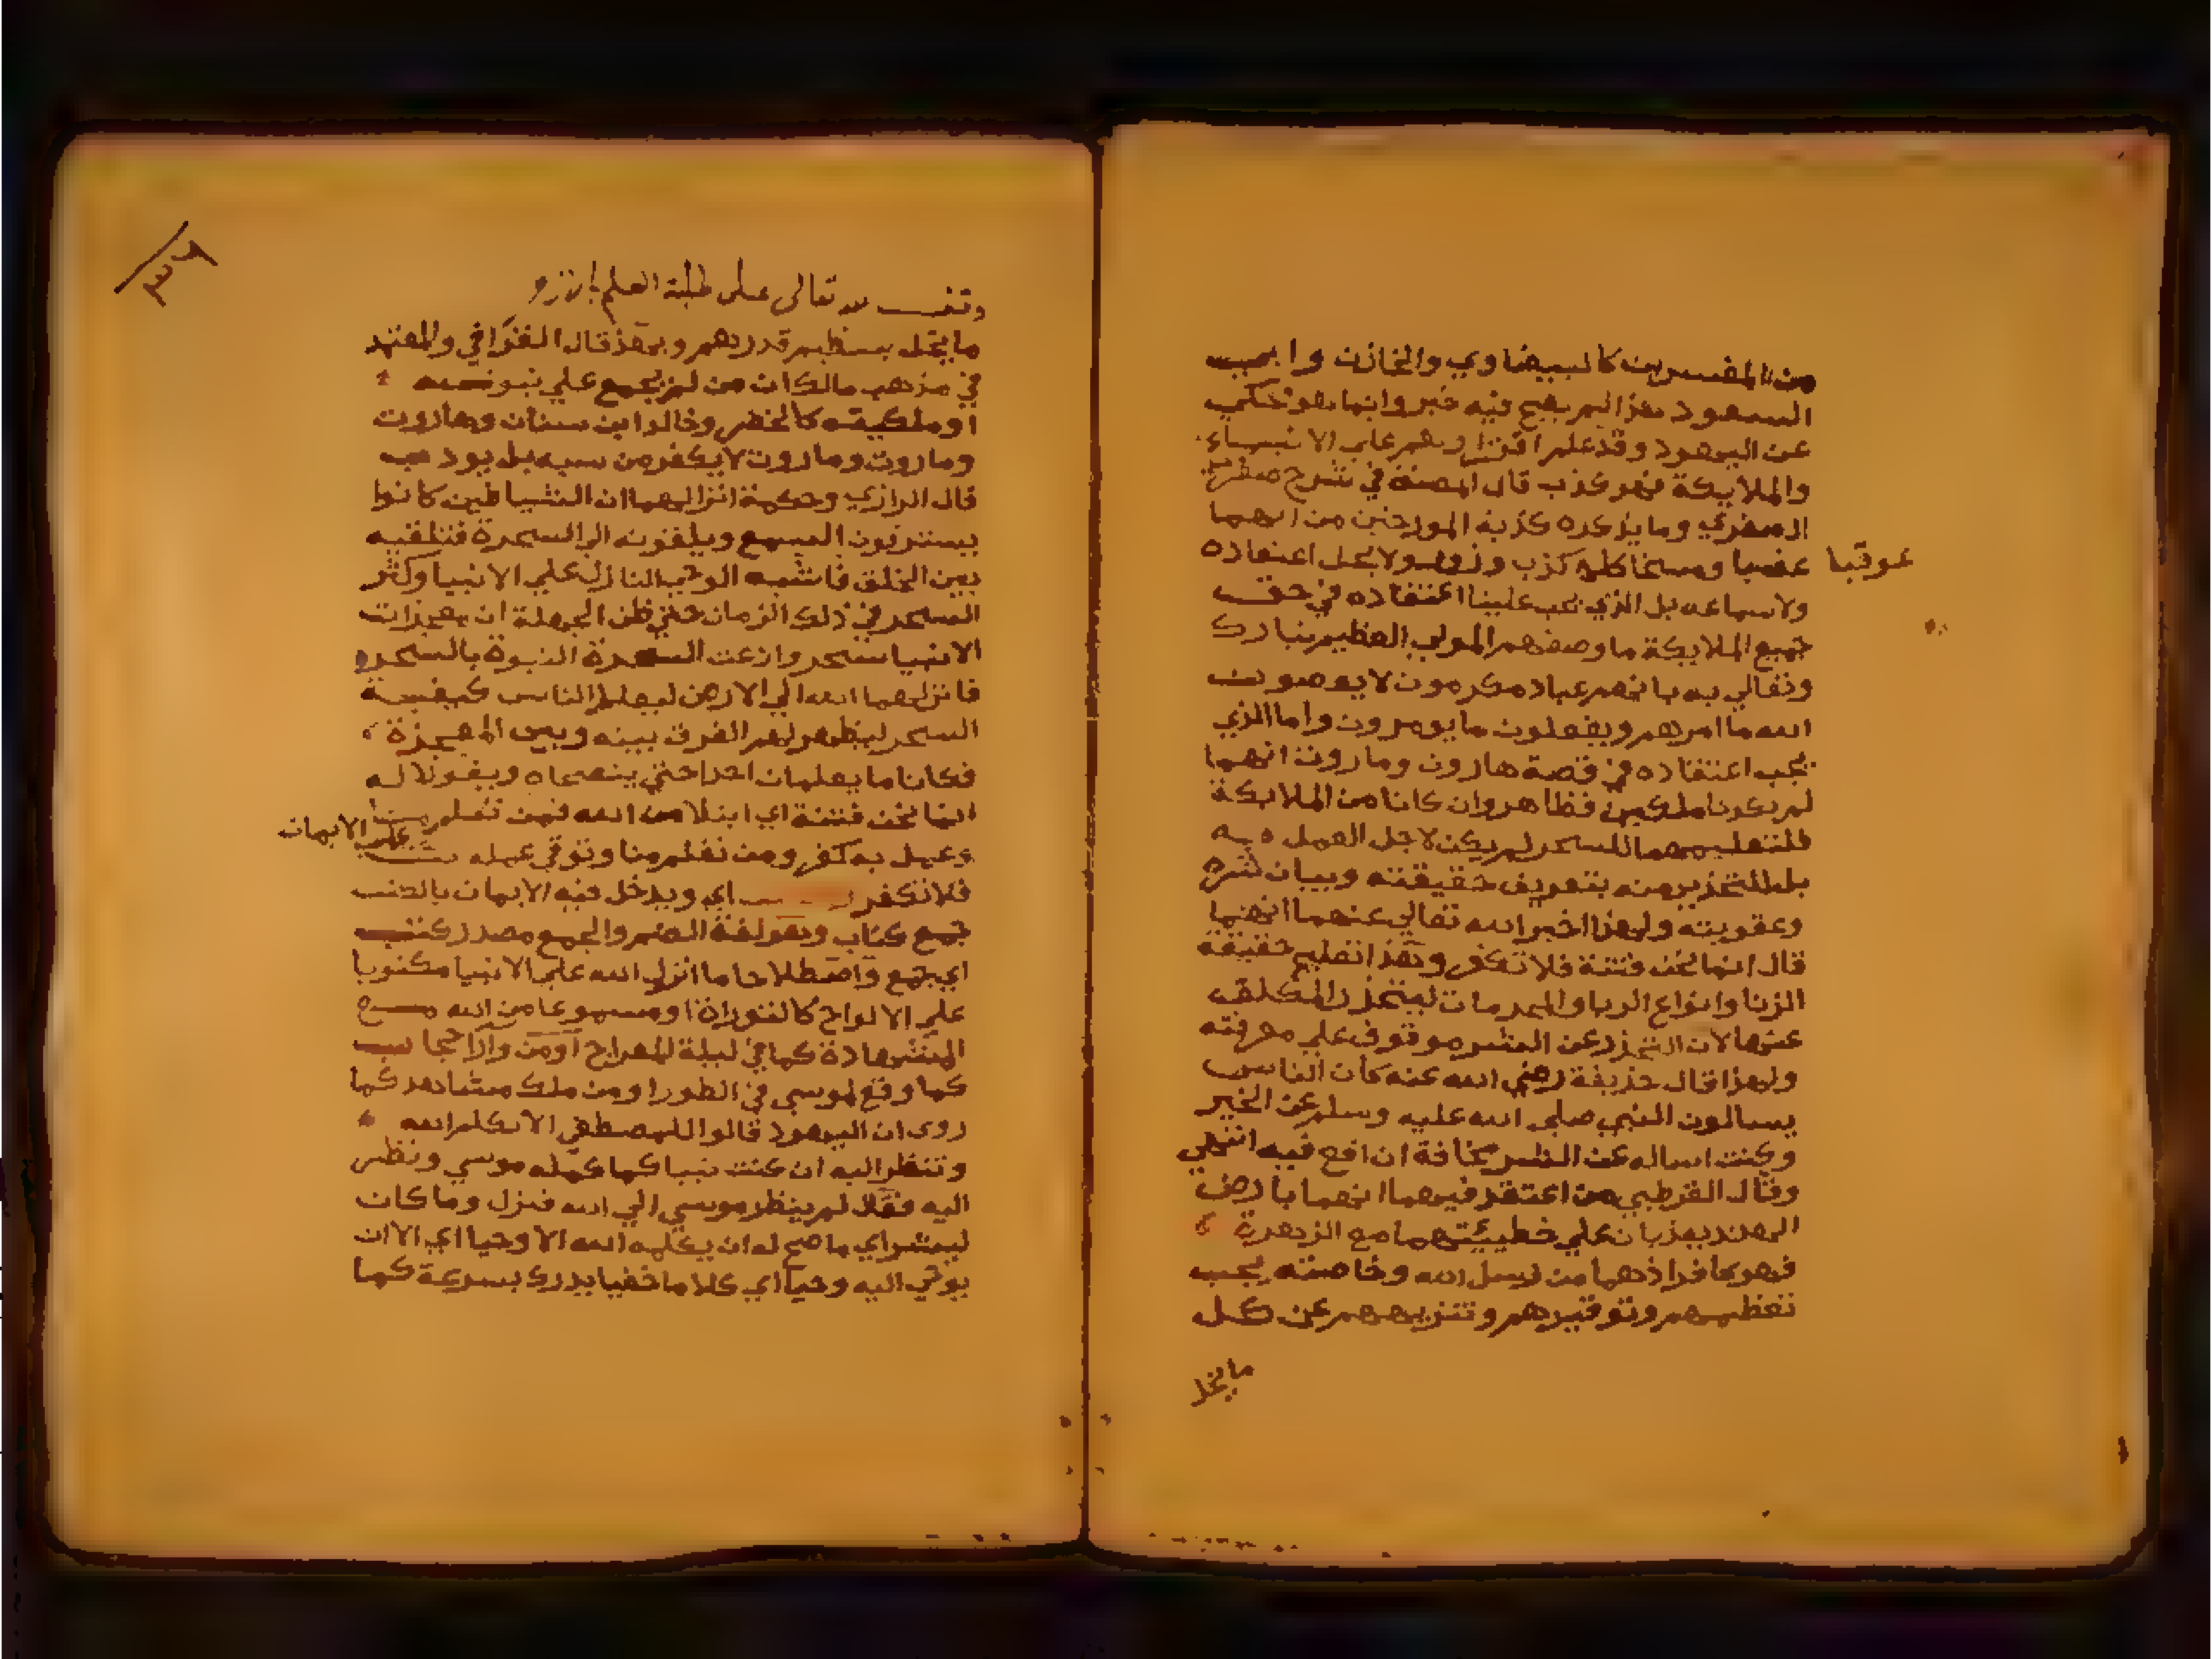 من المفسرين كالبيضاوي والخازن وابي
السعود هذا لم يصح فيه خبر وانما هو محكي
عن اليهود وقد علم افتراوهم علي الانبياء
والملايكة فهو كذب قال المصنف في شرح صغري
الصغري وما يذكره كذبة المورخين من انهما
عوقبا
عصيا ومسخا كله كذب وزور ولا يحل اعتقاده
ولا سماعه بل الذي يجب علينا اعتقاده في حق
جميع الملايكة ما وصفهم المولي العظيم تبارك
وتعالي به بانهم عباد مكرمون لا يعصون
الله ما امرهم ويفعلون ما يومرون واما الذي
يجب اعتقاده في قصة هاروت وماروت انهما
لم يكونا ملكين فظاهر وان كانا من الملايكة
فلتعليمهما السحر لم يكن لاجل العمل به
بل للتحذير منه بتعريف حقيقته وبيان شره
وعقوبته ولهذا اخبر الله تعالي عنهما انهما
قال انما نحن فتنة فلا تكفر وهذا تعليم حقيقة
الزنا وانواع الربا والمحرمات ليتحذر المكلف
عنها لان التحذر عن الشر موقوف علي معرفته
ولهذا قال حذيفة رضي الله عنه كان الناس
يسالون النبي صلي الله عليه وسلم عن الخير
وكنت اساله عن الشر مخافة ان اقع فيه انتهي
وقال القرطبي من اعتقد فيهما انهما بارض
الهند يعذبان علي خطيئتهما مع الزهرة
فهو كافر اذ هما من رسل الله وخاصته يجب
تعظيمهم وتوقيرهم وتنزيههم عن كل
ما يخل
٢٣
وقف لله تعالى على طلبة العلم
ما يخل بعظيم قدرهم وبهذا قال القرافي والمعتمد
في مذهب مالك ان من لم يجمع علي نبوته
او ملكيته كالخضر وخالد ابن سنان وهاروت
وماروت وماروت لا يكفر من سبه بل يودب
قال الرازي وحكمة انزالهما ان الشياطين كانوا
يسترقون السمع ويلقونه الي السحرة فتلقيه
بين الخلق فاشبه الوحي النازل علي الانبيا وكثر
السحر في ذلك الزمان حتي ظن الجهلة ان معجزات
الانبيا سحر وادعت السحرة النبوة بالسحر و
فانزلهما الله الي الارض ليعلما الناس كيفية
السحر ليظهر لهم الفرق بينه وبين المعجزة
فكانا ما يعلمان احدا حتي ينصحاه ويقولا له
انما نحن فتنة اي ابتلا من الله فمن تعلم منا
وعمل به كفر ومن تعلم منا وتوقي عمله ثبت
علي الايمان
فلا تكفر اي ويدخل فيه الايمان بالكتب
جمع كتاب وهو لغة الضم والجمع مصدر كتب
اي جمع واصطلاحا ما انزل الله علي الانبيا مكتوبا
علي الالواح كالتوراة او مسموعا من الله مع
المشاهدة كما في ليلة المعراج او من وراحجاب
كما وقع لموسي في الطور او من ملك مشاهد كما
روي ان اليهود قالوا للمصطفي الا تكلم الله
وتنظر اليه ان كنت نبيا كما كلمه موسي ونظر
اليه فقال لم ينظر موسي الي الله فنزل وما كان
لبشر اي ما صح له ان يكلمه الله الا وحيا اي الا ان
يوحي اليه وحيا اي كلاما خفيا يدرك بسرعة كما